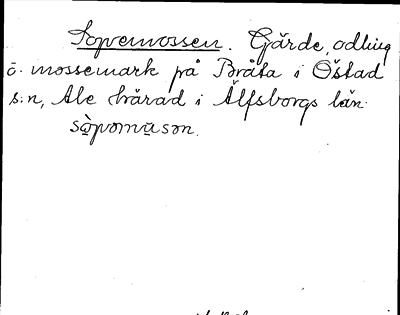 Sopvemossen. Gärde, odling
o. mossemark på Bråta i Östad
s:n, Ale härad i Älfsborgs län.
sò̤pvəmu̅sən.